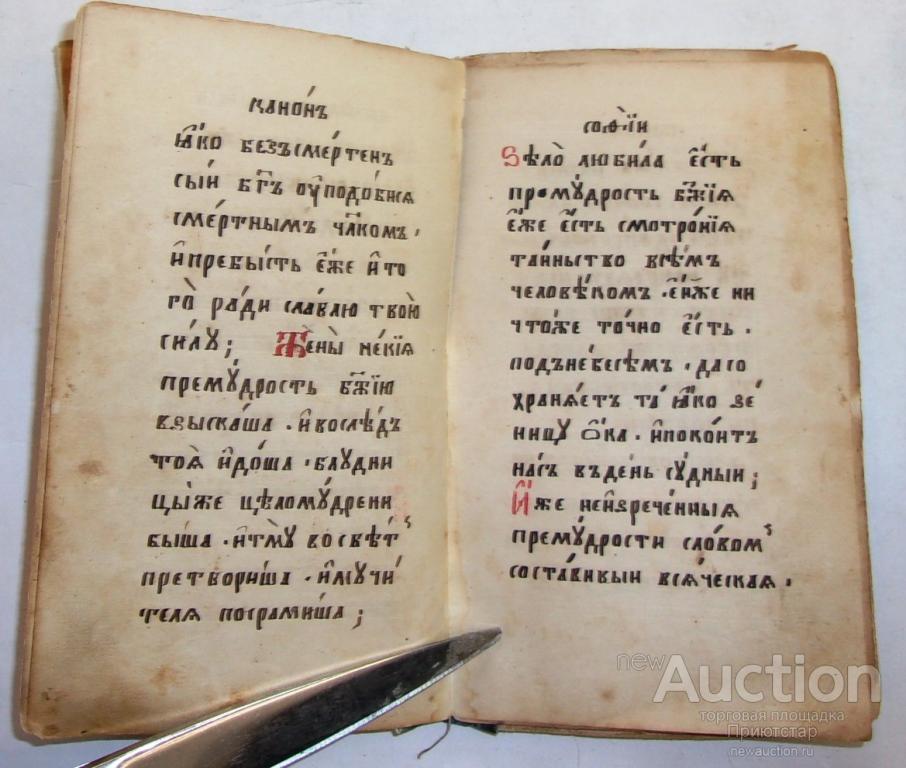 канѡ́нъ
ꙗ҆́ко без̾смертенъ
сыи бг҃ъ оу҆подобися
сме́ртнымъ чл҃ком.
и҆пребысть є҆́же и҆то
го̀ ра́ди славлю твою̀
си́лу; Же́ны̀ не́кїя
прему́дрость бж҃їю
взыска́ша . и҆вослѣ́дъ
тоя̀ и҆до́ша . блудни
цы́же цѣлому́дрени
бы́ша . и҆тму̀ восвѣ́т
претвори́ша . и҆мучи́
теля посрами́ша;
соѳі́и
Ѕѣло̀ люби́ла є҆́сть
прому́дрость бж҃їя
є҆́же є҆́сть смотро́нїя
та́инство всѣ́мъ
человѣ́комъ . є҆и́же ни
что́же точно є҆́сть .
подъне́бесѣмъ . дасо
храня́етъ та̀ ꙗ҆́ко зе́
ницу о҆́ка . и҆поко́итъ
на́съ въде́нь су́дныи;
И҆́же неи҆зрече́нныя
прему́дрости сло́вом
соста́вивыи вся́ческая .
newAuction
торговая площадка
Приютстар
newauction.ru